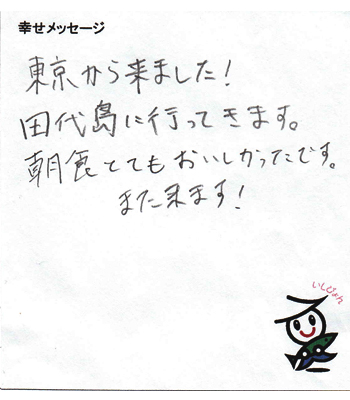 幸せメッセージ
東京から来ました！
田代島に行ってきます。
朝食とてもおいしかったです。
また来ます！
いしぴょん